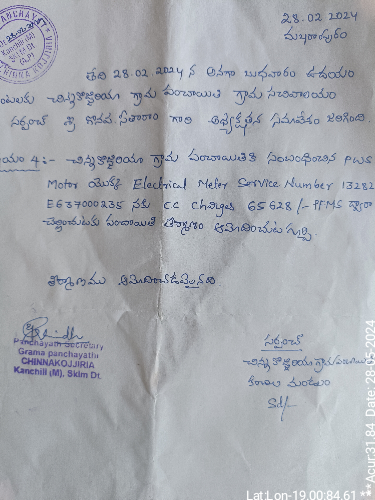 PANCHAYAT
CHINNA KOJJIRIA
Dt. 28-02-2024
Kanchili (M)
Skim Dt
(A.P)
28.02.2024
మఖరాంపురం
తేది 28.02.2024 న అనగా బుధవారం ఉదయం
చిన్నకొజ్జిరియా గ్రామ పంచాయితి గ్రామ సచివాలయం
సర్పంచ్ శ్రీ సీతారాం గారి అధ్యక్షతన సమావేశం జరిగింది.
4:- చిన్నకొజ్జిరియా గ్రామ పంచాయితికి సంబంధించిన PWS
Motor యొక్క Electrical Meter Service Number 13282
E637000235 నకు CC Charges 65628/- PFMS ద్వారా
చెల్లించుటకు పంచాయితి తీర్మానం ఆమోదించుట గుర్చి.
తీర్మానము ఆమోదించడమైనది
Panchayath Secretary
Grama panchayathi
CHINNAKOJJIRIA
Kanchili (M), Skim Dt.
సర్పంచ్
చిన్నకొజ్జిరియా గ్రామ
కంచిలి మండలం
Sd/-
Lat:Lon-19.00:84.61 **Acur:31.84 Date:28-05-2024